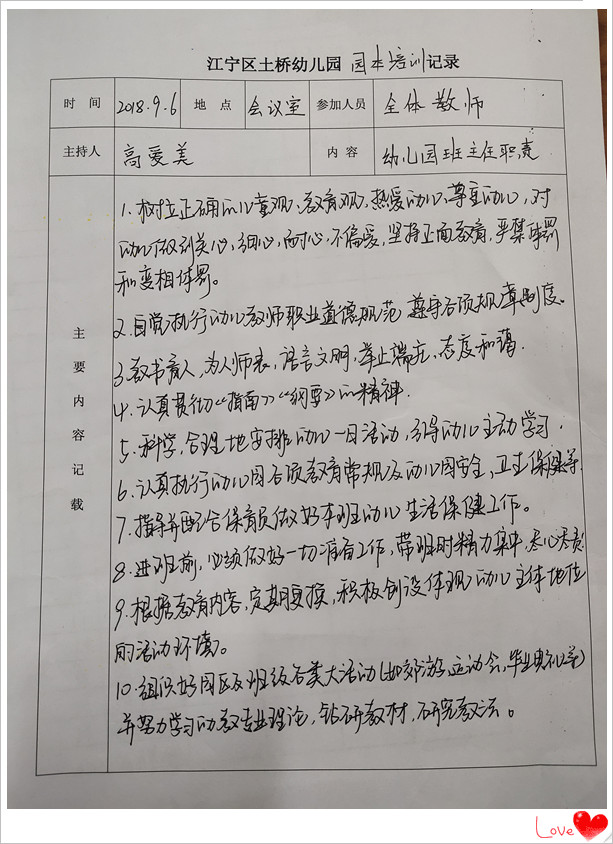 江宁区土桥幼儿园 园本培训记录
时 间 2018.9.6 地 点 会议室 参加人员 全体教师
主持人 高爱美 内 容 幼儿园班主任职责
主要内容记载
1.树立正确的儿童观、教育观,热爱幼儿、尊重幼儿,对
幼儿做到关心、细心、耐心、不偏爱,坚持正面教育,严禁体罚
和变相体罚。
2.自觉执行幼儿教师职业道德规范 遵守各项规章制度。
3.教书育人,为人师表,语言文明,举止端庄,态度和蔼.
4.认真贯彻《指南》《纲要》的精神.
5.科学,合理地安排幼儿一日活动,引导幼儿主动学习.
6.认真执行幼儿园各项教育常规及幼儿园安全,卫生保健等.
7.指导并配合保育员做好本班幼儿生活保健工作。
8.进班前,必须做好一切准备工作,带班时精力集中,尽心尽责.
9.根据教育内容,定期更换,积极创设体现幼儿主体地位
的活动环境。
10.组织好园区及班级各类大活动(如郊游,运动会,毕业典礼等)
并努力学习幼教专业理论,钻研教材,研究教法。
Love